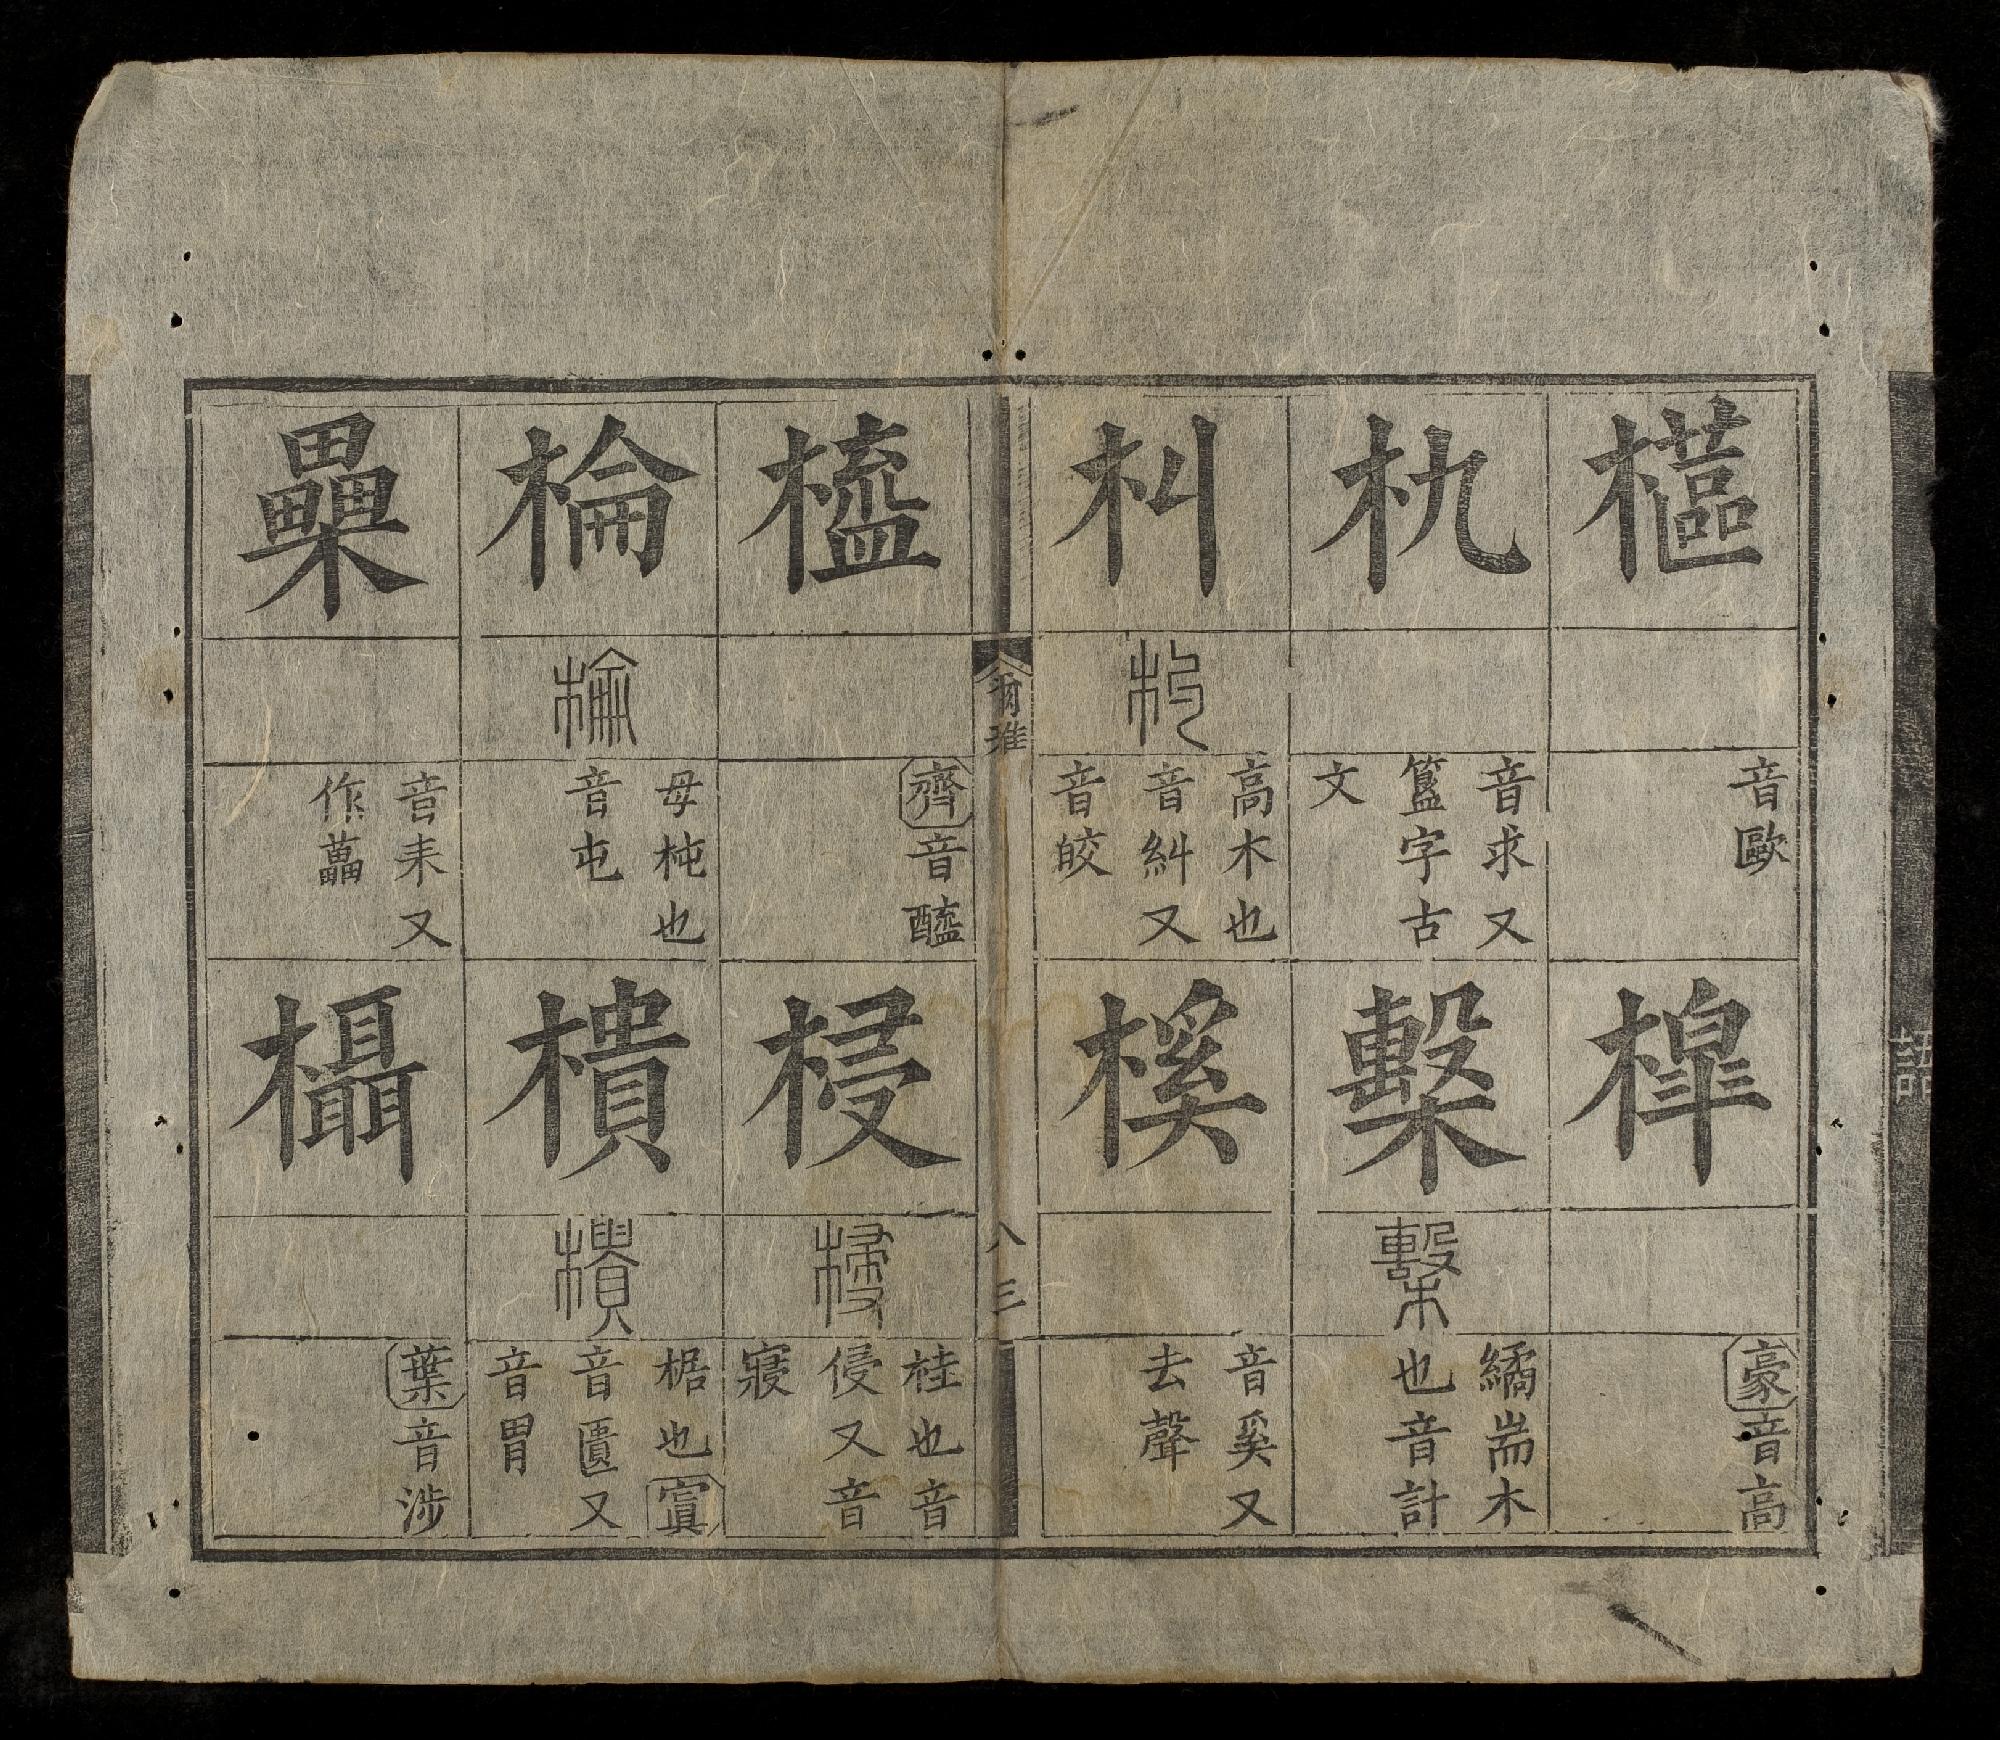 櫙
音歐
槔
豪音高
朹
音求又
簋字古
文
檕
檕
繘耑木
也音計
朻
朻
高木也
音糾又
音皎
榽
音奚又
去聲
爾雅
八三
齊音醯
梫
梫
桂也音
侵又音
寢
棆
棆
毋杶也
音屯
樻
樻
椐也寘
音匱又
音胃
櫐
音耒又
作藟
欇
葉音涉